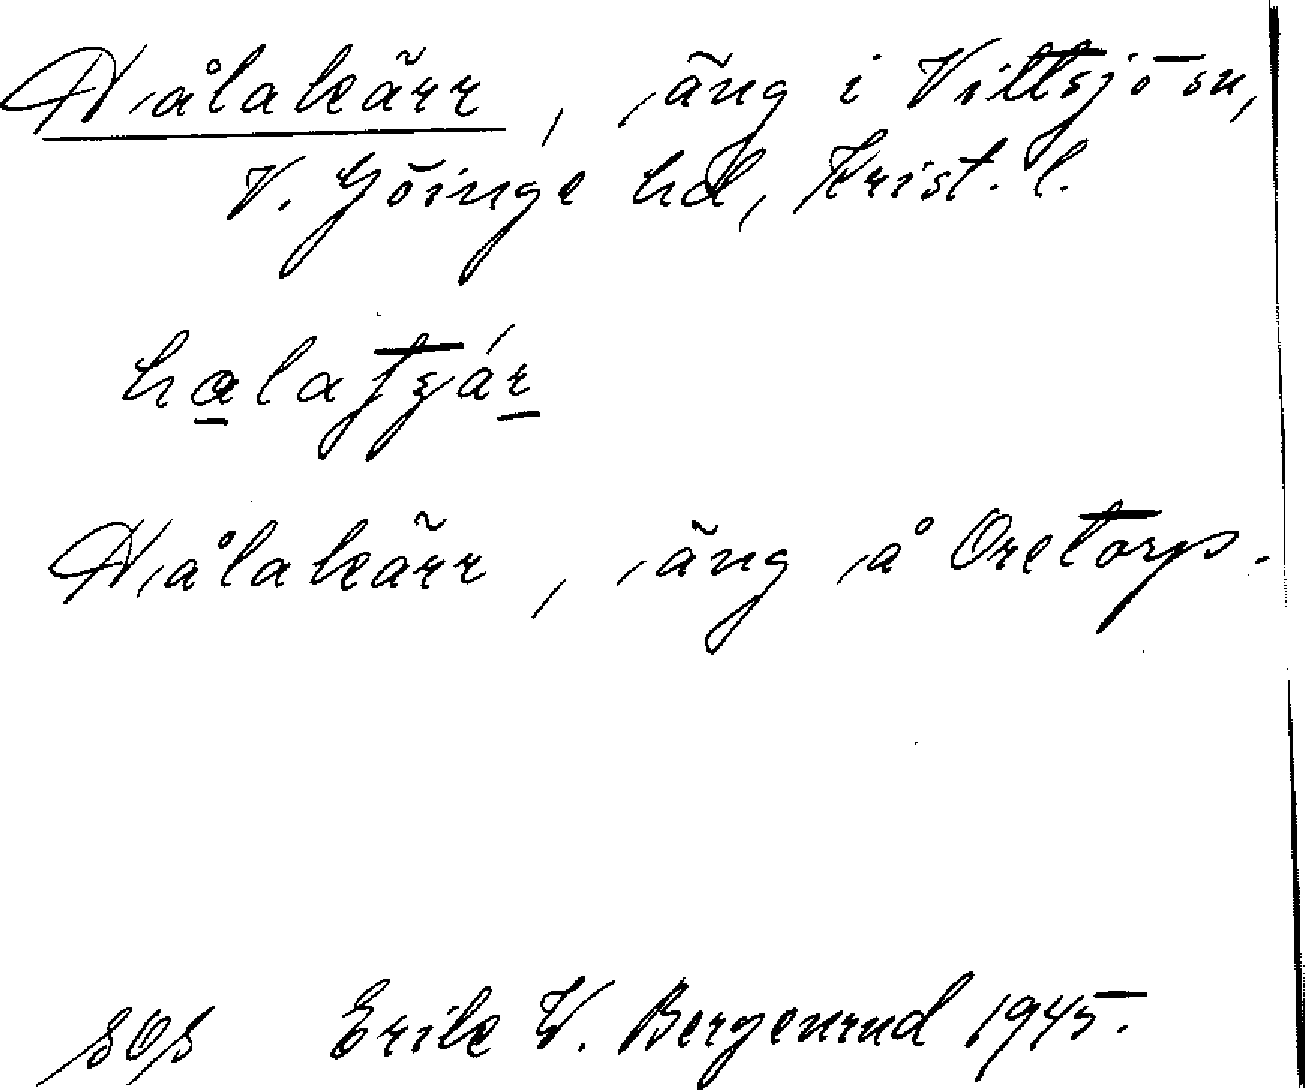 Hålakärr, äng i Vittsjö sn,
V. Göinge hd, Krist. l.
Hålakärr, äng å Oretorp.
SOS Erik W. Bergenrud 1945.